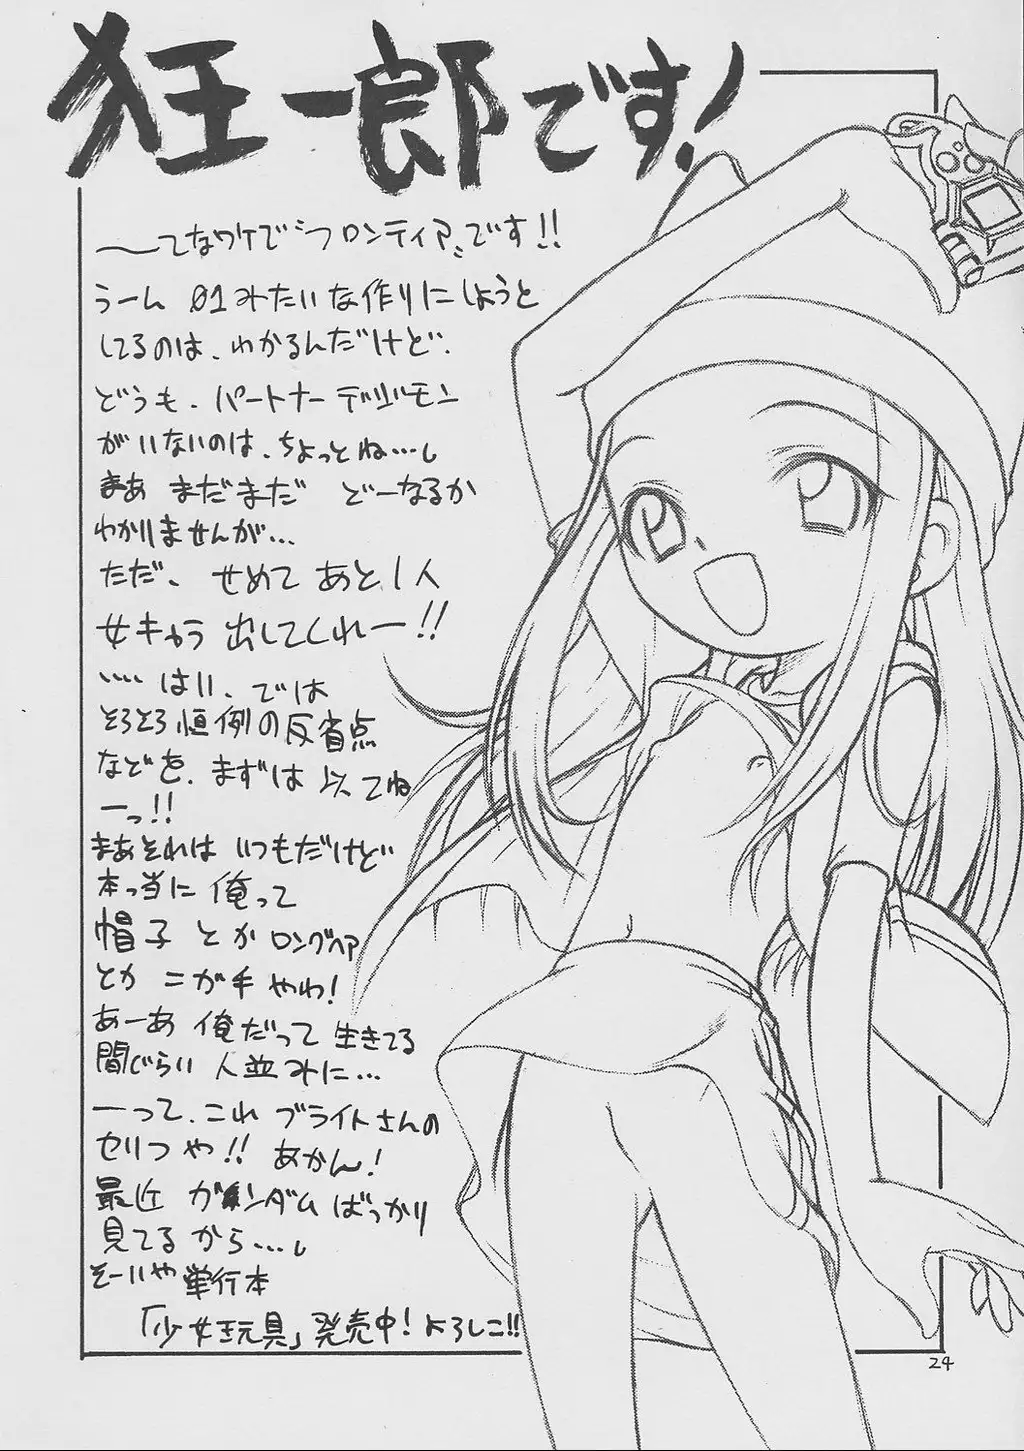 狂一郎です!
〜てなワケで“フロンティア”です!!
うーん 01みたいな作りにしようと
してるのは、わかるんだけど、
どうも、パートナーデジモン
がいないのは、ちょっとね…し
まあ まだまだ どーなるか
わかりませんが…
ただ、せめて あと1人
女キャラ 出してくれー!!
…… はい、では
そろそろ恒例の反省点
などを、まずは 以てね
ーっ!!
まあそれは いつもだけど
本っ当に 俺って
帽子 とか ロングヘア
とか ニガ手 やわ!
あーあ 俺だって 生きてる
間じらい 人並みに…
ーって、これ ブライトさんの
セリフや!! あかん!
最近 ガンダム ばっかり
見てるから…し
そーいや 単行本
「少女玩具」発売中! よろしこ!!
24